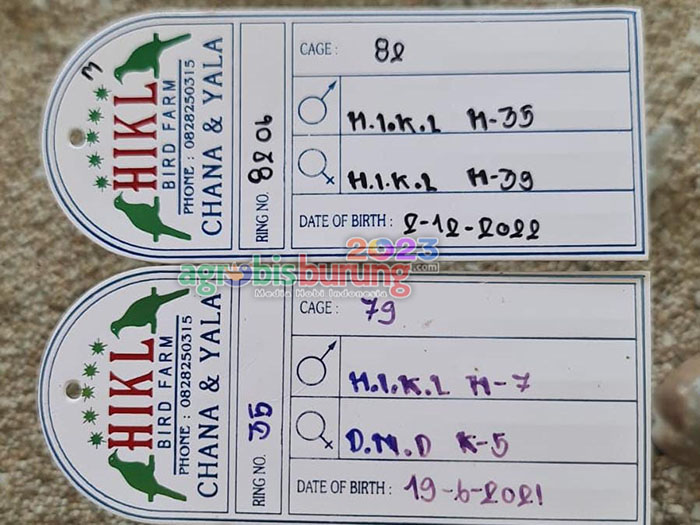 3
HIKL
BIRD FARM
PHONE : 0828250315
CHANA & YALA
RING NO. 8206
CAGE : 82
H.I.K.L H-35
H.I.K.L H-39
DATE OF BIRTH : 2-12-2022
2023
agrobisburung.com
Media Hobi Indonesia
HIKL
BIRD FARM
PHONE : 0828250315
CHANA & YALA
RING NO. 35
CAGE : 79
H.I.K.L H-7
D.M.D K-5
DATE OF BIRTH : 19-6-2021